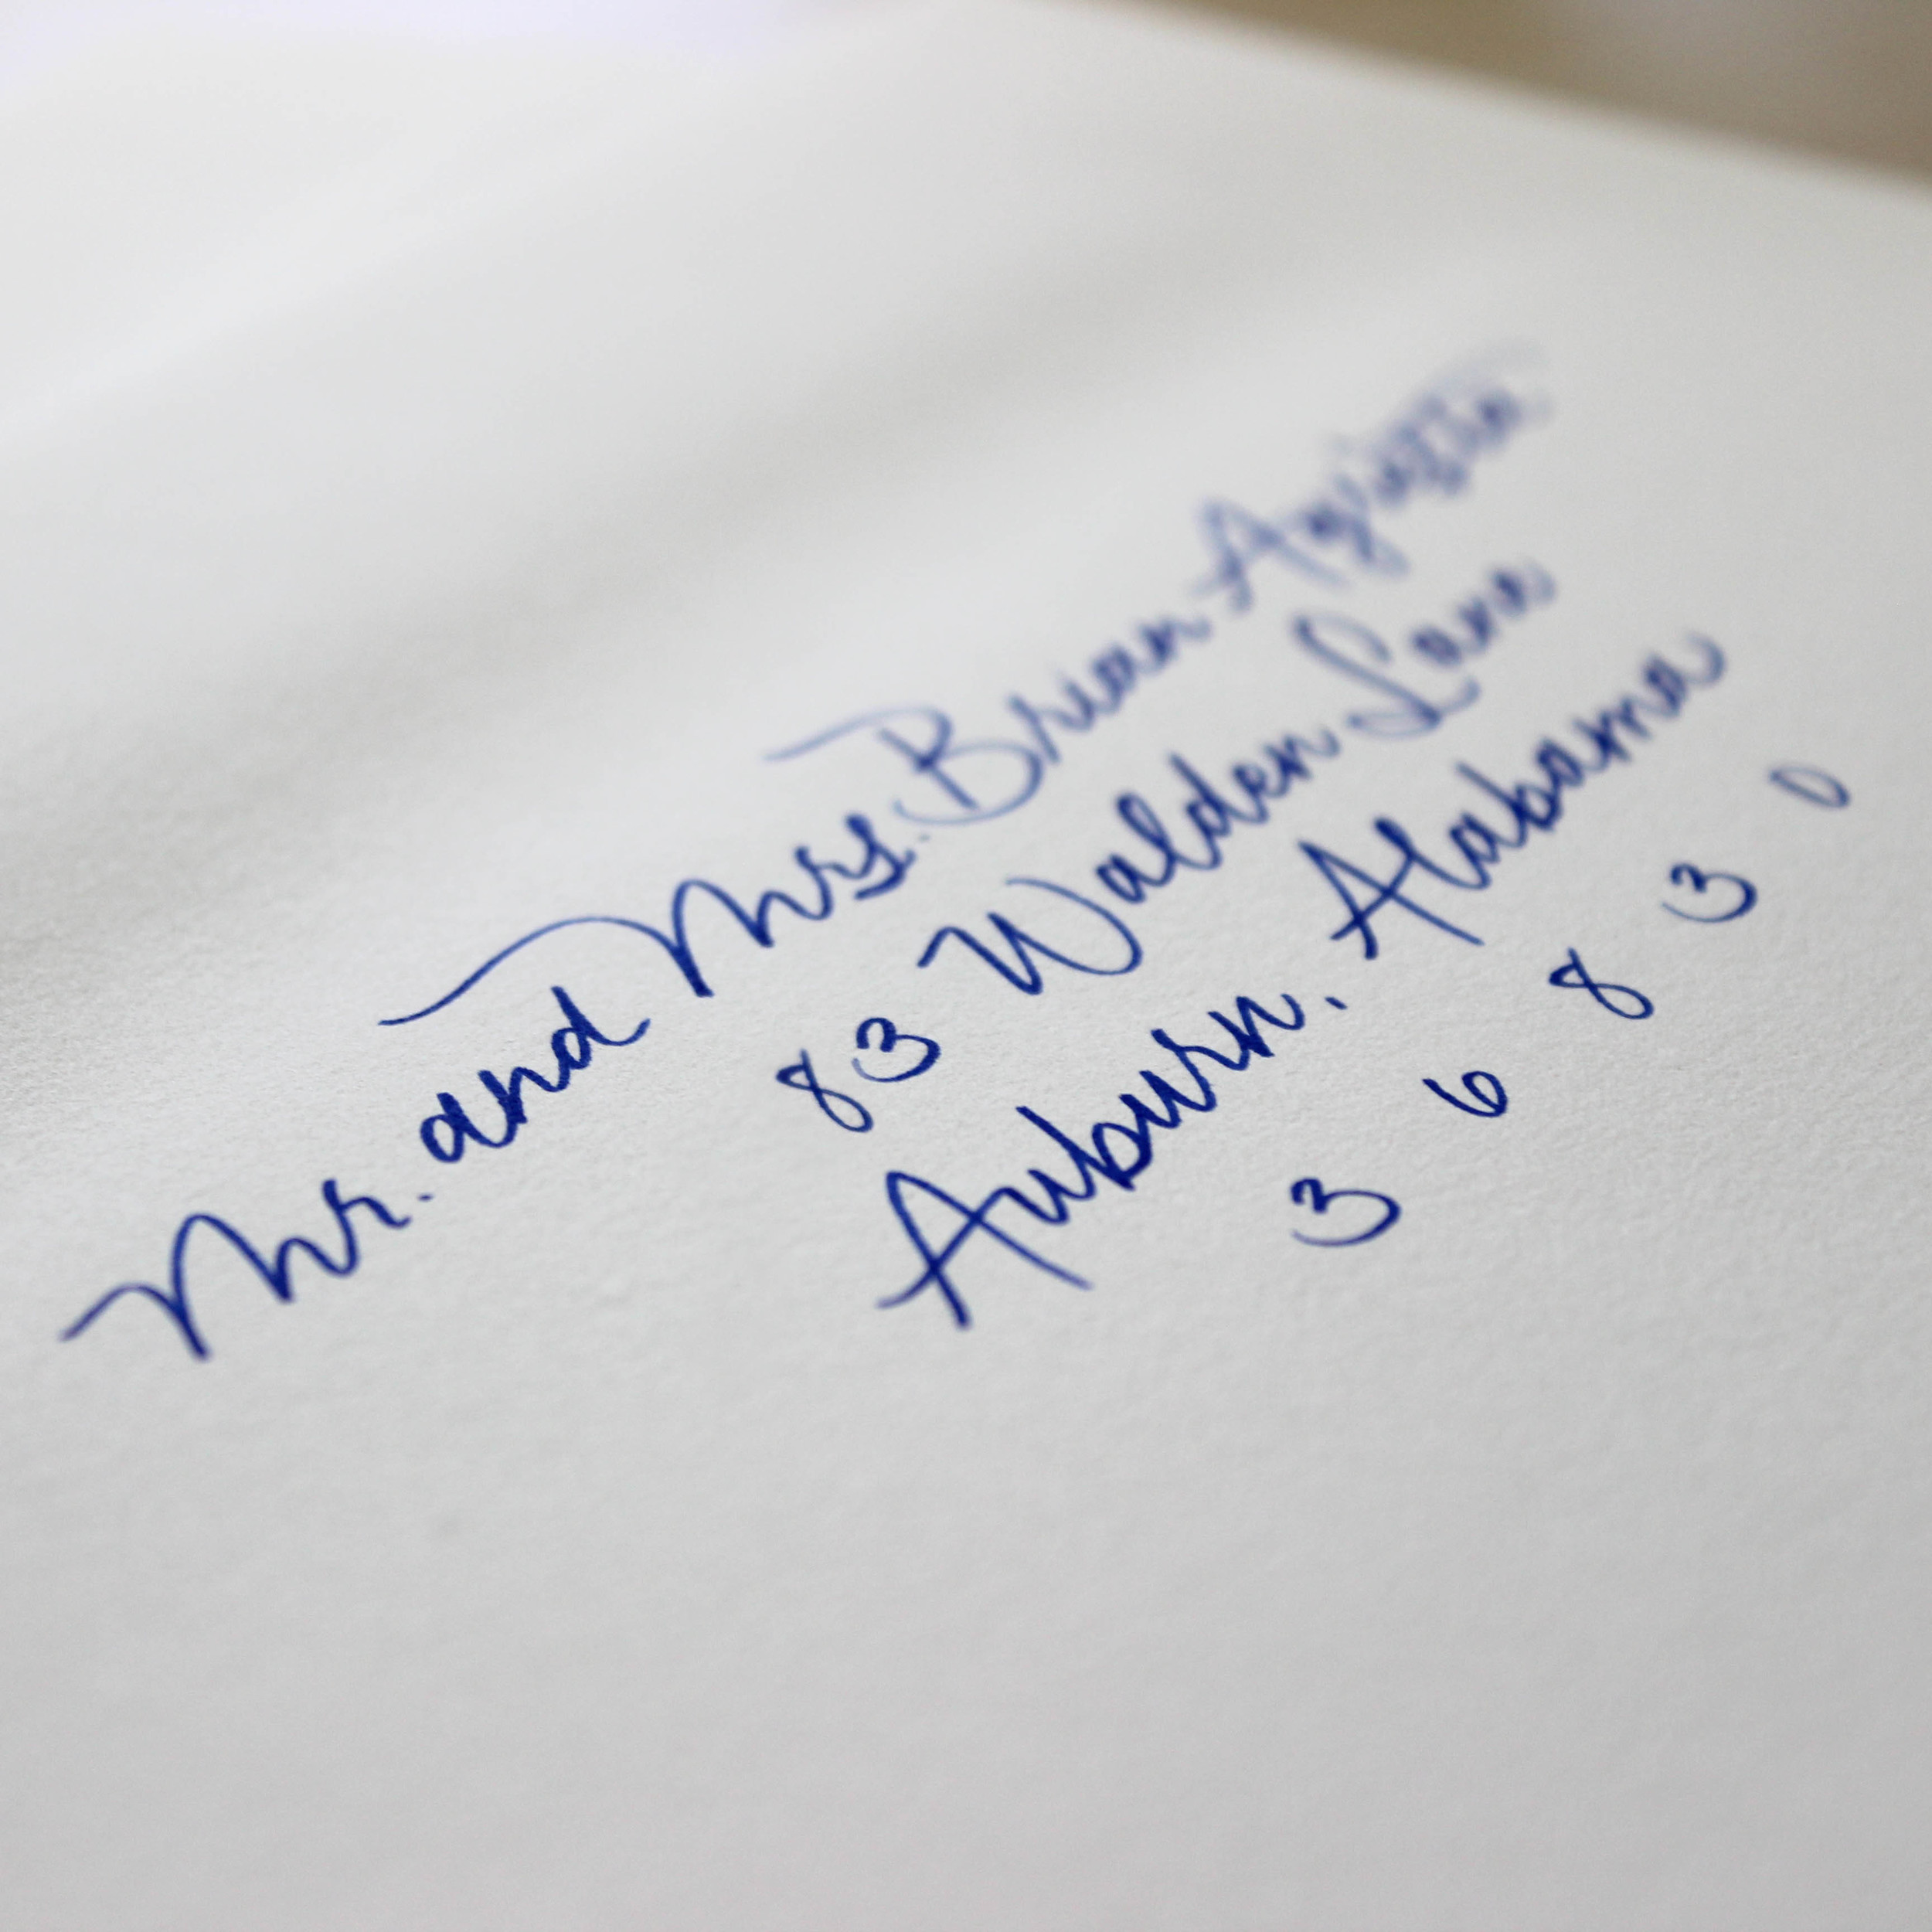 Mr. and Mrs. Brian
83 Walden Lane
Auburn, Alabama
3 6 8 3 0